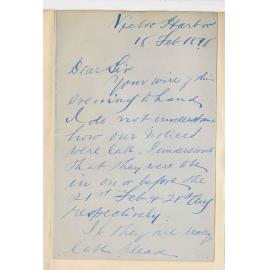 Victor Harbor
18 Feb 1898
Dear Sir
Your wire of this
evening to hand
I do not understand
how our notices
were late. I understood
that they were to be
in on or before the
21st Feb &
respectively.
If they are really
late please